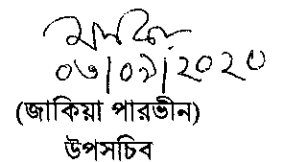 ০৬/০৯/২০২০
(জাকিয়া পারভীন)
উপসচিব